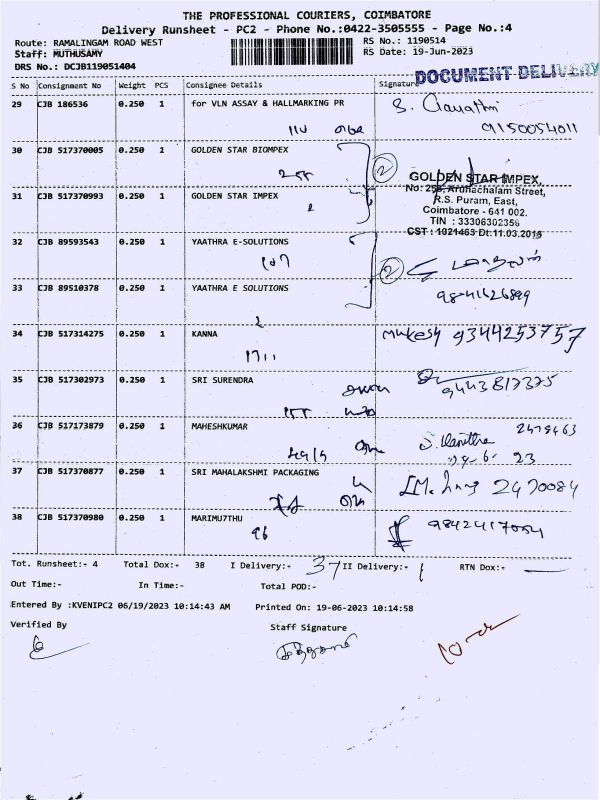 THE PROFESSIONAL COURIERS, COIMBATORE
Delivery Runsheet - PC2 - Phone No.:0422-3505555 - Page No.:4
Route: RAMALINGAM ROAD WEST
RS No.: 1190514
Staff: MUTHUSAMY
RS Date: 19-Jun-2023
DRS No.: DCJB119051404
DOCUMENT DELIVERY
S No Consignment No Weight PCS Consignee Details Signature
29 CJB 186536 0.250 1 for VLN ASSAY & HALLMARKING PR
9150054011
30 CJB 517370005 0.250 1 GOLDEN STAR BIOMPEX
2
GOLDEN STAR IMPEX,
No: 25B, Arunachalam Street,
31 CJB 517370993 0.250 1 GOLDEN STAR IMPEX
R.S. Puram, East,
Coimbatore - 641 002.
TIN : 33306302356
CST : 1021463 Dt:11.03.2015
32 CJB 89593543 0.250 1 YAATHRA E-SOLUTIONS
2
33 CJB 89510378 0.250 1 YAATHRA E SOLUTIONS
34 CJB 517314275 0.250 1 KANNA
Mukesh 9344253757
1711
35 CJB 517302973 0.250 1 SRI SURENDRA
9443817375
36 CJB 517173879 0.250 1 MAHESHKUMAR
23
37 CJB 517370877 0.250 1 SRI MAHALAKSHMI PACKAGING
2470084
38 CJB 517370980 0.250 1 MARIMU7THU
96
Tot. Runsheet:- 4 Total Dox:- 38 I Delivery:- 37 II Delivery:- 1 RTN Dox:-
Out Time:- In Time:- Total POD:-
Entered By :KVENIPC2 06/19/2023 10:14:43 AM Printed On: 19-06-2023 10:14:58
Verified By Staff Signature